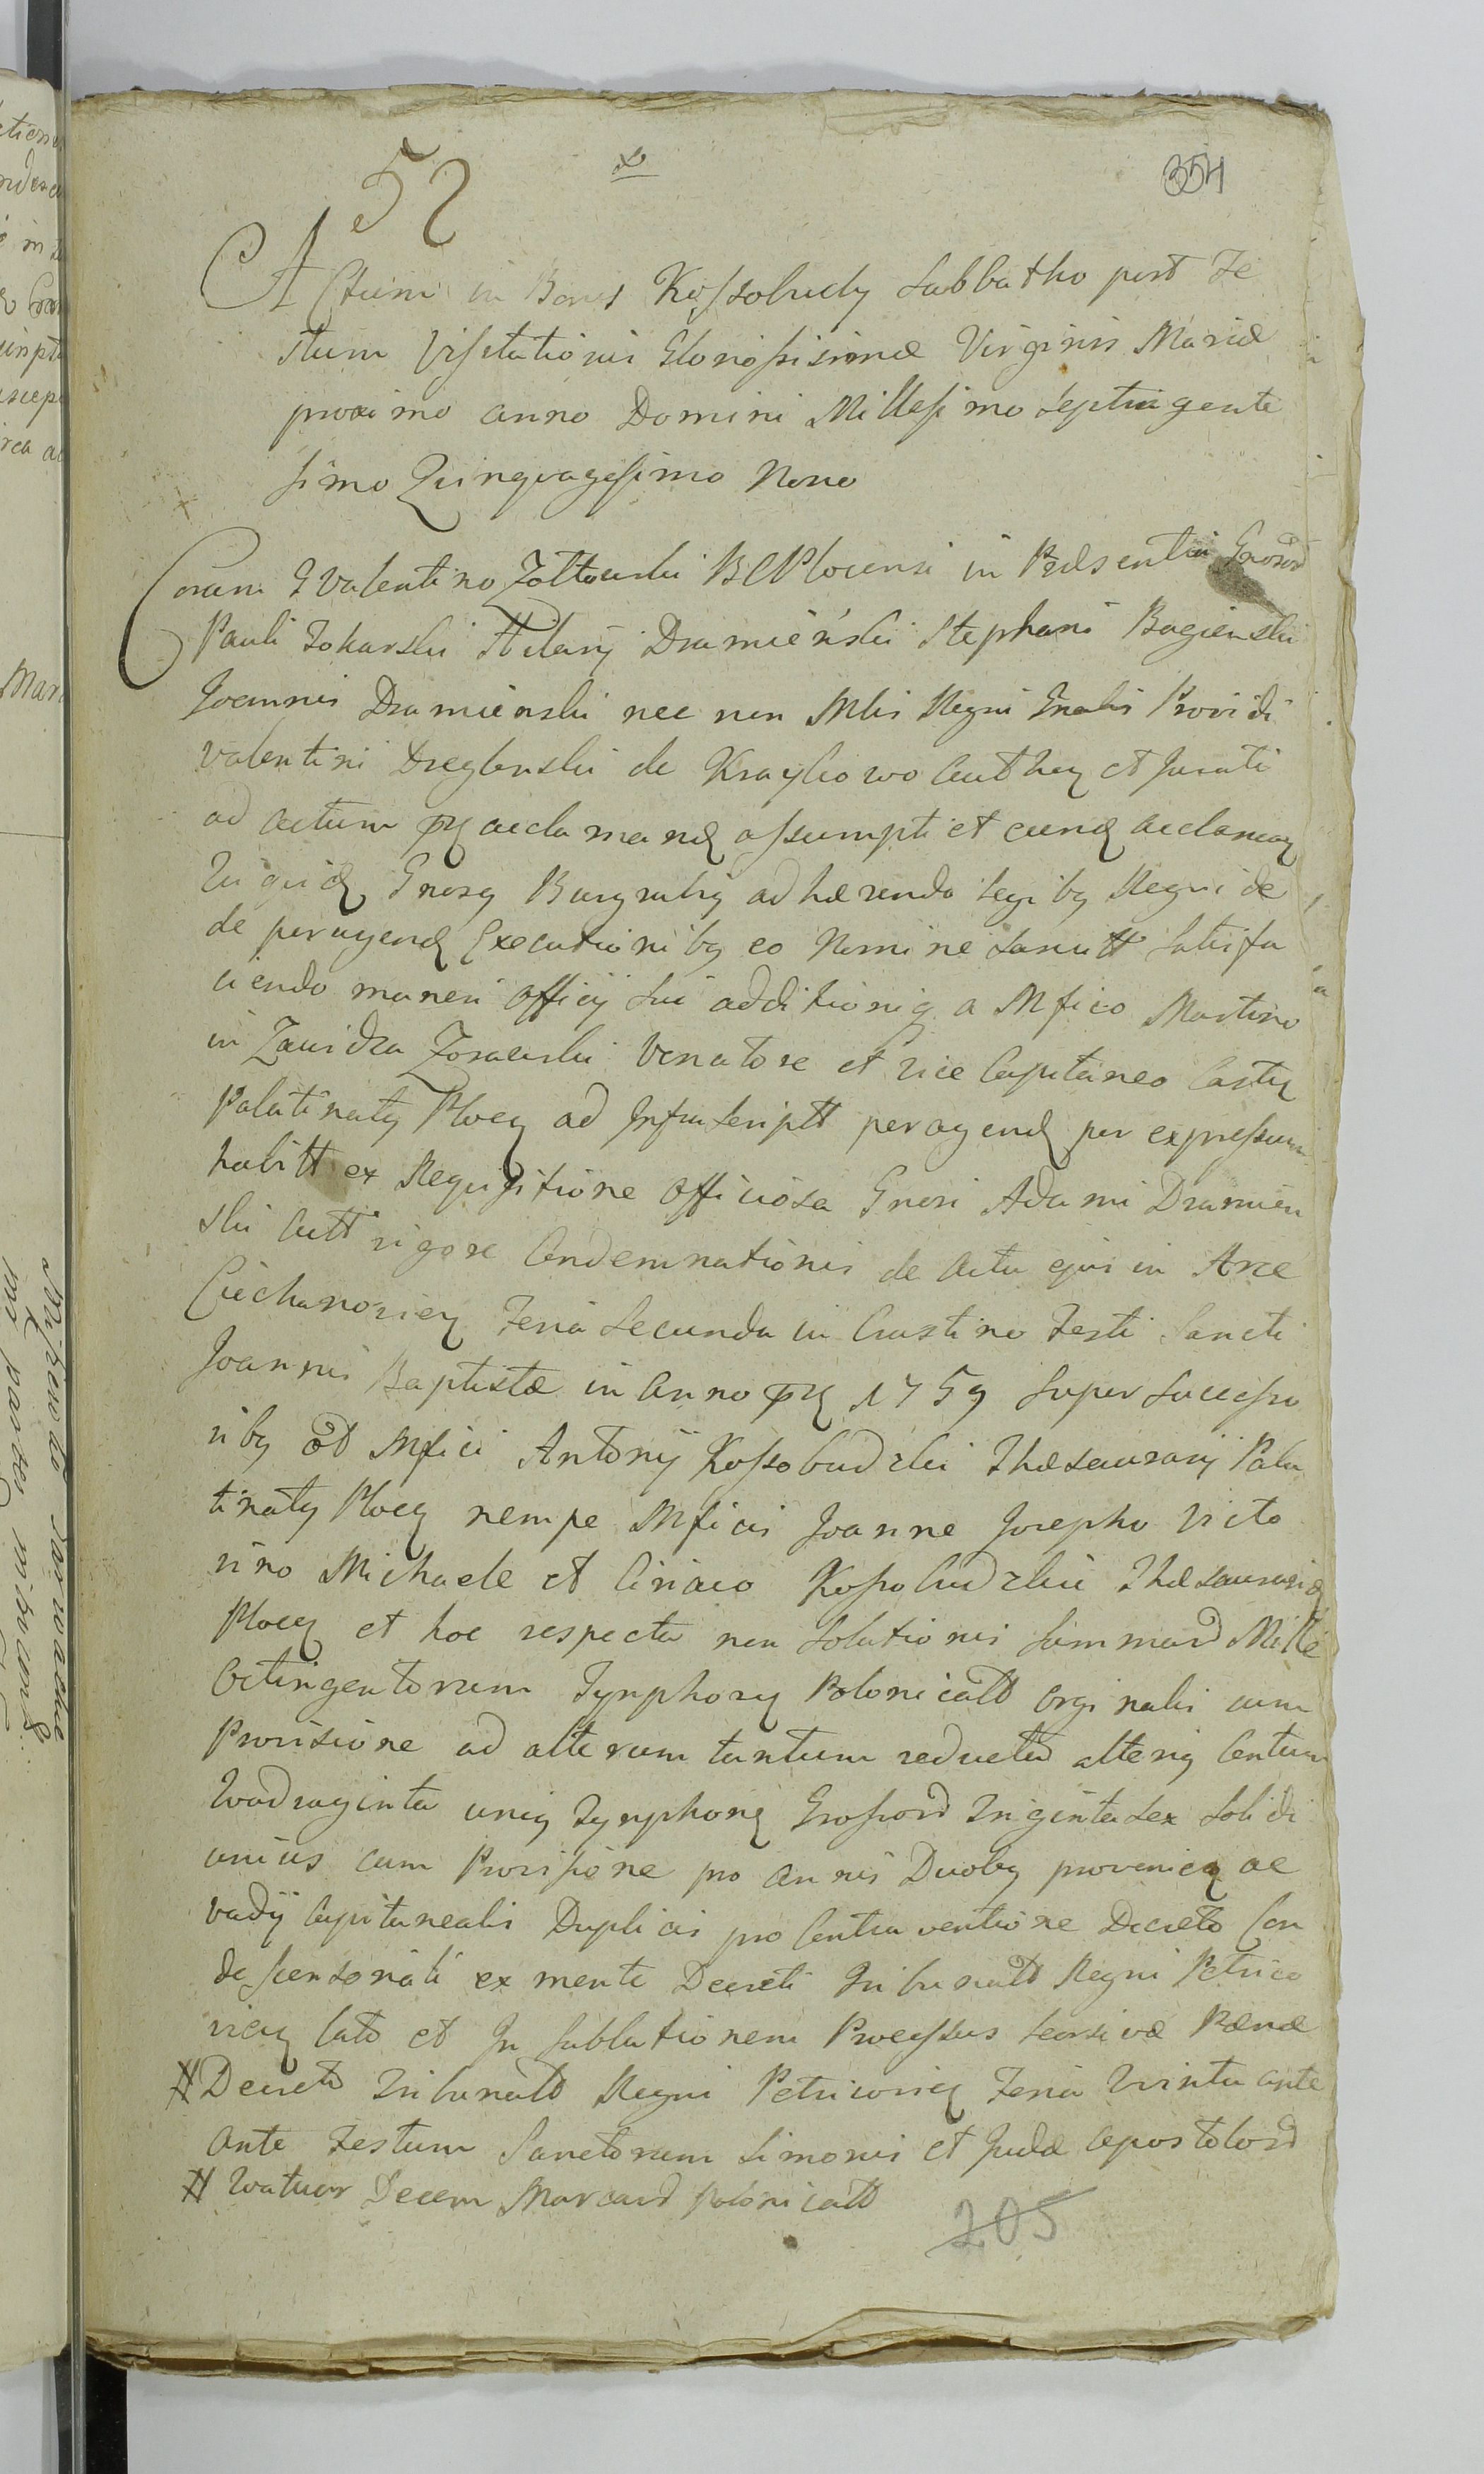 52
354
Actum in Bonis Kossobudy Sabbatho post Fe
stum Visitationis Gloriosissimæ Virginis Mariæ
proximo anno Domini Millesimo Septingente
simo Quinquagesimo Nono
Coram G Valentino Zołtowski BCPlocensi in Præsentia Gnosor
Pauli Tokarski Hilarij Dramiński Stephani Bagienski
Joannis Dramienski nec non Mlis Regni Gnalis Providi
Valentini Dreglenski de Kraykowo Authen et Jurati
ad actum pn acclamand assumpti et eund acclaman
Qui quid Gnosus Burgrabius adhærendo legibus Regni de
de peragend Executionibus eo Nomine Sancitt Satisfa
ciendo muneri officij sui additionis a Mfico Martino
in Zawidza Zorawski Venatore et Vice Capitaneo Castr
Palatinatus Plocen ad Infrascriptt peragend per expressum
habitt ex Requisitione officiosa Gnosi Adami Dramien
ski Actt vigore Condemnationis de Actu ejus in Arce
Ciechanovien Feria Secunda in Crastino Festi Sancti
Joannis Baptistæ in Anno pn 1759 super Successo
ribus od Mfici Antonij Kossobudzki Thesaurarij Pala
tinatus Plocen nempe Mficis Joanne Josepho Victo
rino Michaele et Ciriaco Kossobudzkie Thesaurarid
Plocen et hoc respectu non Solutionis Summard Mille
Octingentorum Tynphorum Polonicatt Orginalis cum
Provisione ad alterum tantum reducta alterius Centum
Quadraginta unius Tynphorum Grossord Triginta sex Solidi
unius cum Provisione pro annis Duobus provenien ac
vadij Capitanealis Duplicis pro Contraventione Decreto Con
descensoriali ex mente Decreti Tribunatt Regni Petrico
vien lato et In sublationem Processus seorsivæ Pænæ
# Decreto Tribunatt Regni Petricovien Feria Quinta ante
ante Festum Sanctorum Simonis et Judæ Apostolord
# Quatuor Decem Marcard Polonicatt
205